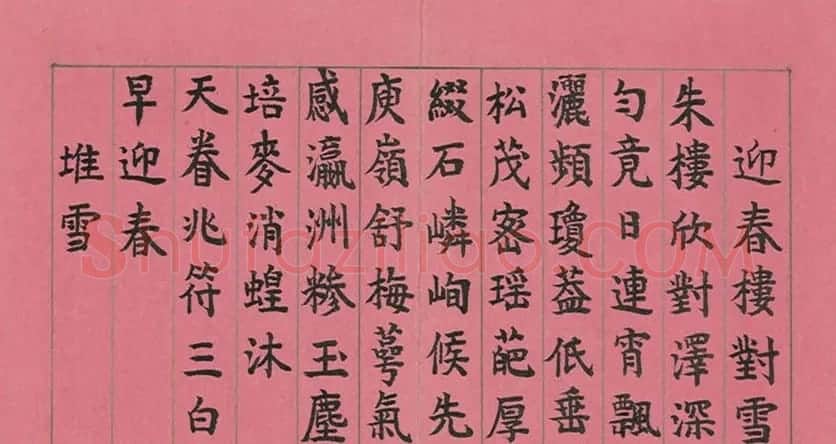 迎春樓對雪
朱樓欣對澤深
勻竟日連宵飄
灑頻瓊葢低垂
松茂密瑶葩厚
綴石嶙峋候先
庚嶺舒梅萼氣
感瀛洲糝玉塵
培麥消蝗沐
天眷兆符三白
早迎春
堆雪
Shufaziliao.COM